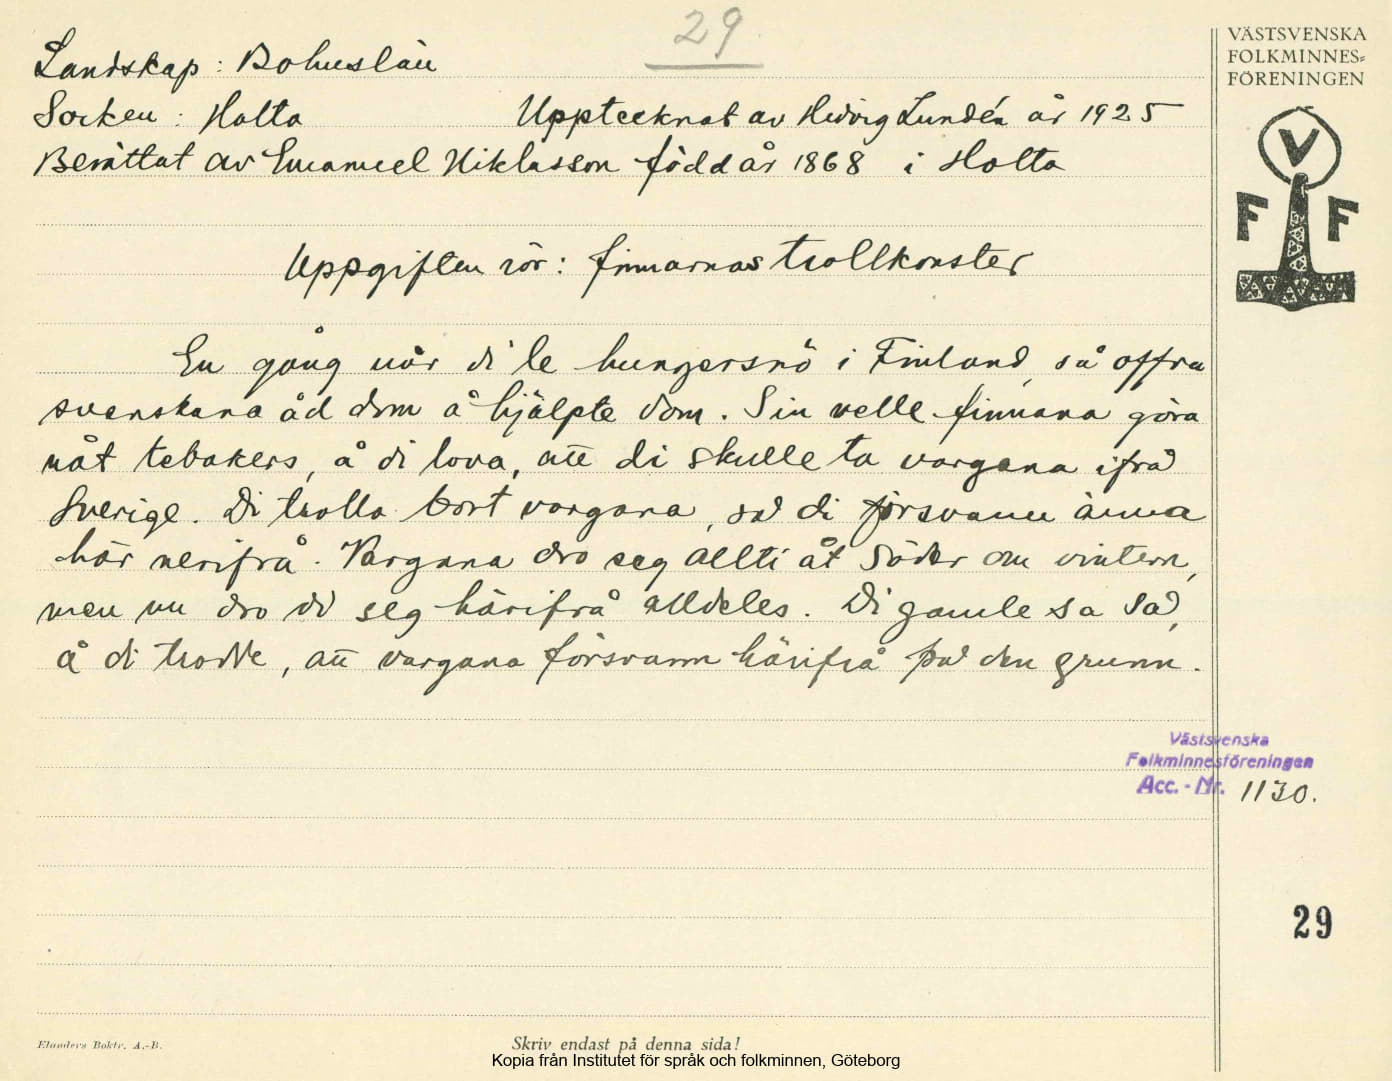 29
Landskap: Bohuslän
Socken: Holta Upptecknat av Hedvig Lundén år 1925
Berättat av Emanuel Niklasson född år 1868 i Holta
Uppgiften rör: finnarnas trollkonster
En gång när di le hungersnö i Finland, så offra
svenskana åd dom å hjälpte dom. Sin velle finnana göra
nåt tebakers, å di lova, att di skulle ta vargana ifrå
Sverige. Di trolla bort vargana, så di försvann änna
här nerifrå. Vargana dro seg allti åt söder om vintern,
men nu dro di seg härifrå alldeles. Di gamle sa så,
å di trodde, att vargana försvann härifrå på den grunn.
VÄSTSVENSKA
FOLKMINNES=
FÖRENINGEN
V
F F
Västsvenska
Folkminnesföreningen
Acc. - Nr. 1130.
29
Elanders Boktr. A.-B.
Skriv endast på denna sida!
Kopia från Institutet för språk och folkminnen, Göteborg